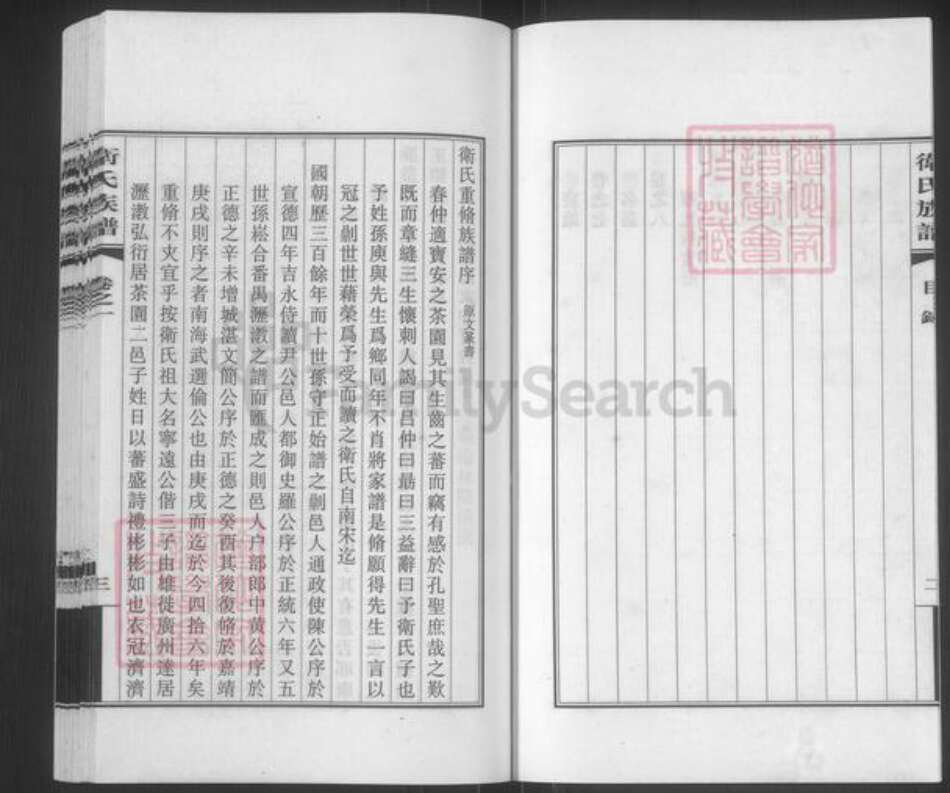 衛氏族譜
目錄
二
衛氏重脩族譜序 原文篆書
春仲適寶安之茶園見其生齒之蕃而竊有感於孔聖庶哉之歎
既而章縫三生懷刺人謁曰呂仲曰勗曰三益辭曰予衛氏子也
予姓孫庾與先生爲鄉同年不肖將家譜是脩願得先生一言以
冠之剻世世藉榮爲予受而讀之衛氏自南宋迄
國朝歷三百餘年而十世孫守正始譜之剻邑人通政使陳公序於
宣德四年吉永侍讀尹公邑人都御史羅公序於正統六年又五
世孫崧合番禺瀝滘之譜而匯成之則邑人户部郎中黃公序於
正德之辛未增城湛文簡公序於正德之癸酉其後復脩於嘉靖
庚戌則序之者南海武選倫公也由庚戌而迄於今四拾六年矣
重脩不夾宜乎按衛氏祖大名寧遠公偕三子由雄徙廣州達居
瀝滘弘衍居茶園二邑子姓日以蕃盛詩禮彬彬如也衣冠濟濟
衛氏族譜
卷之一
三
FamilySearch